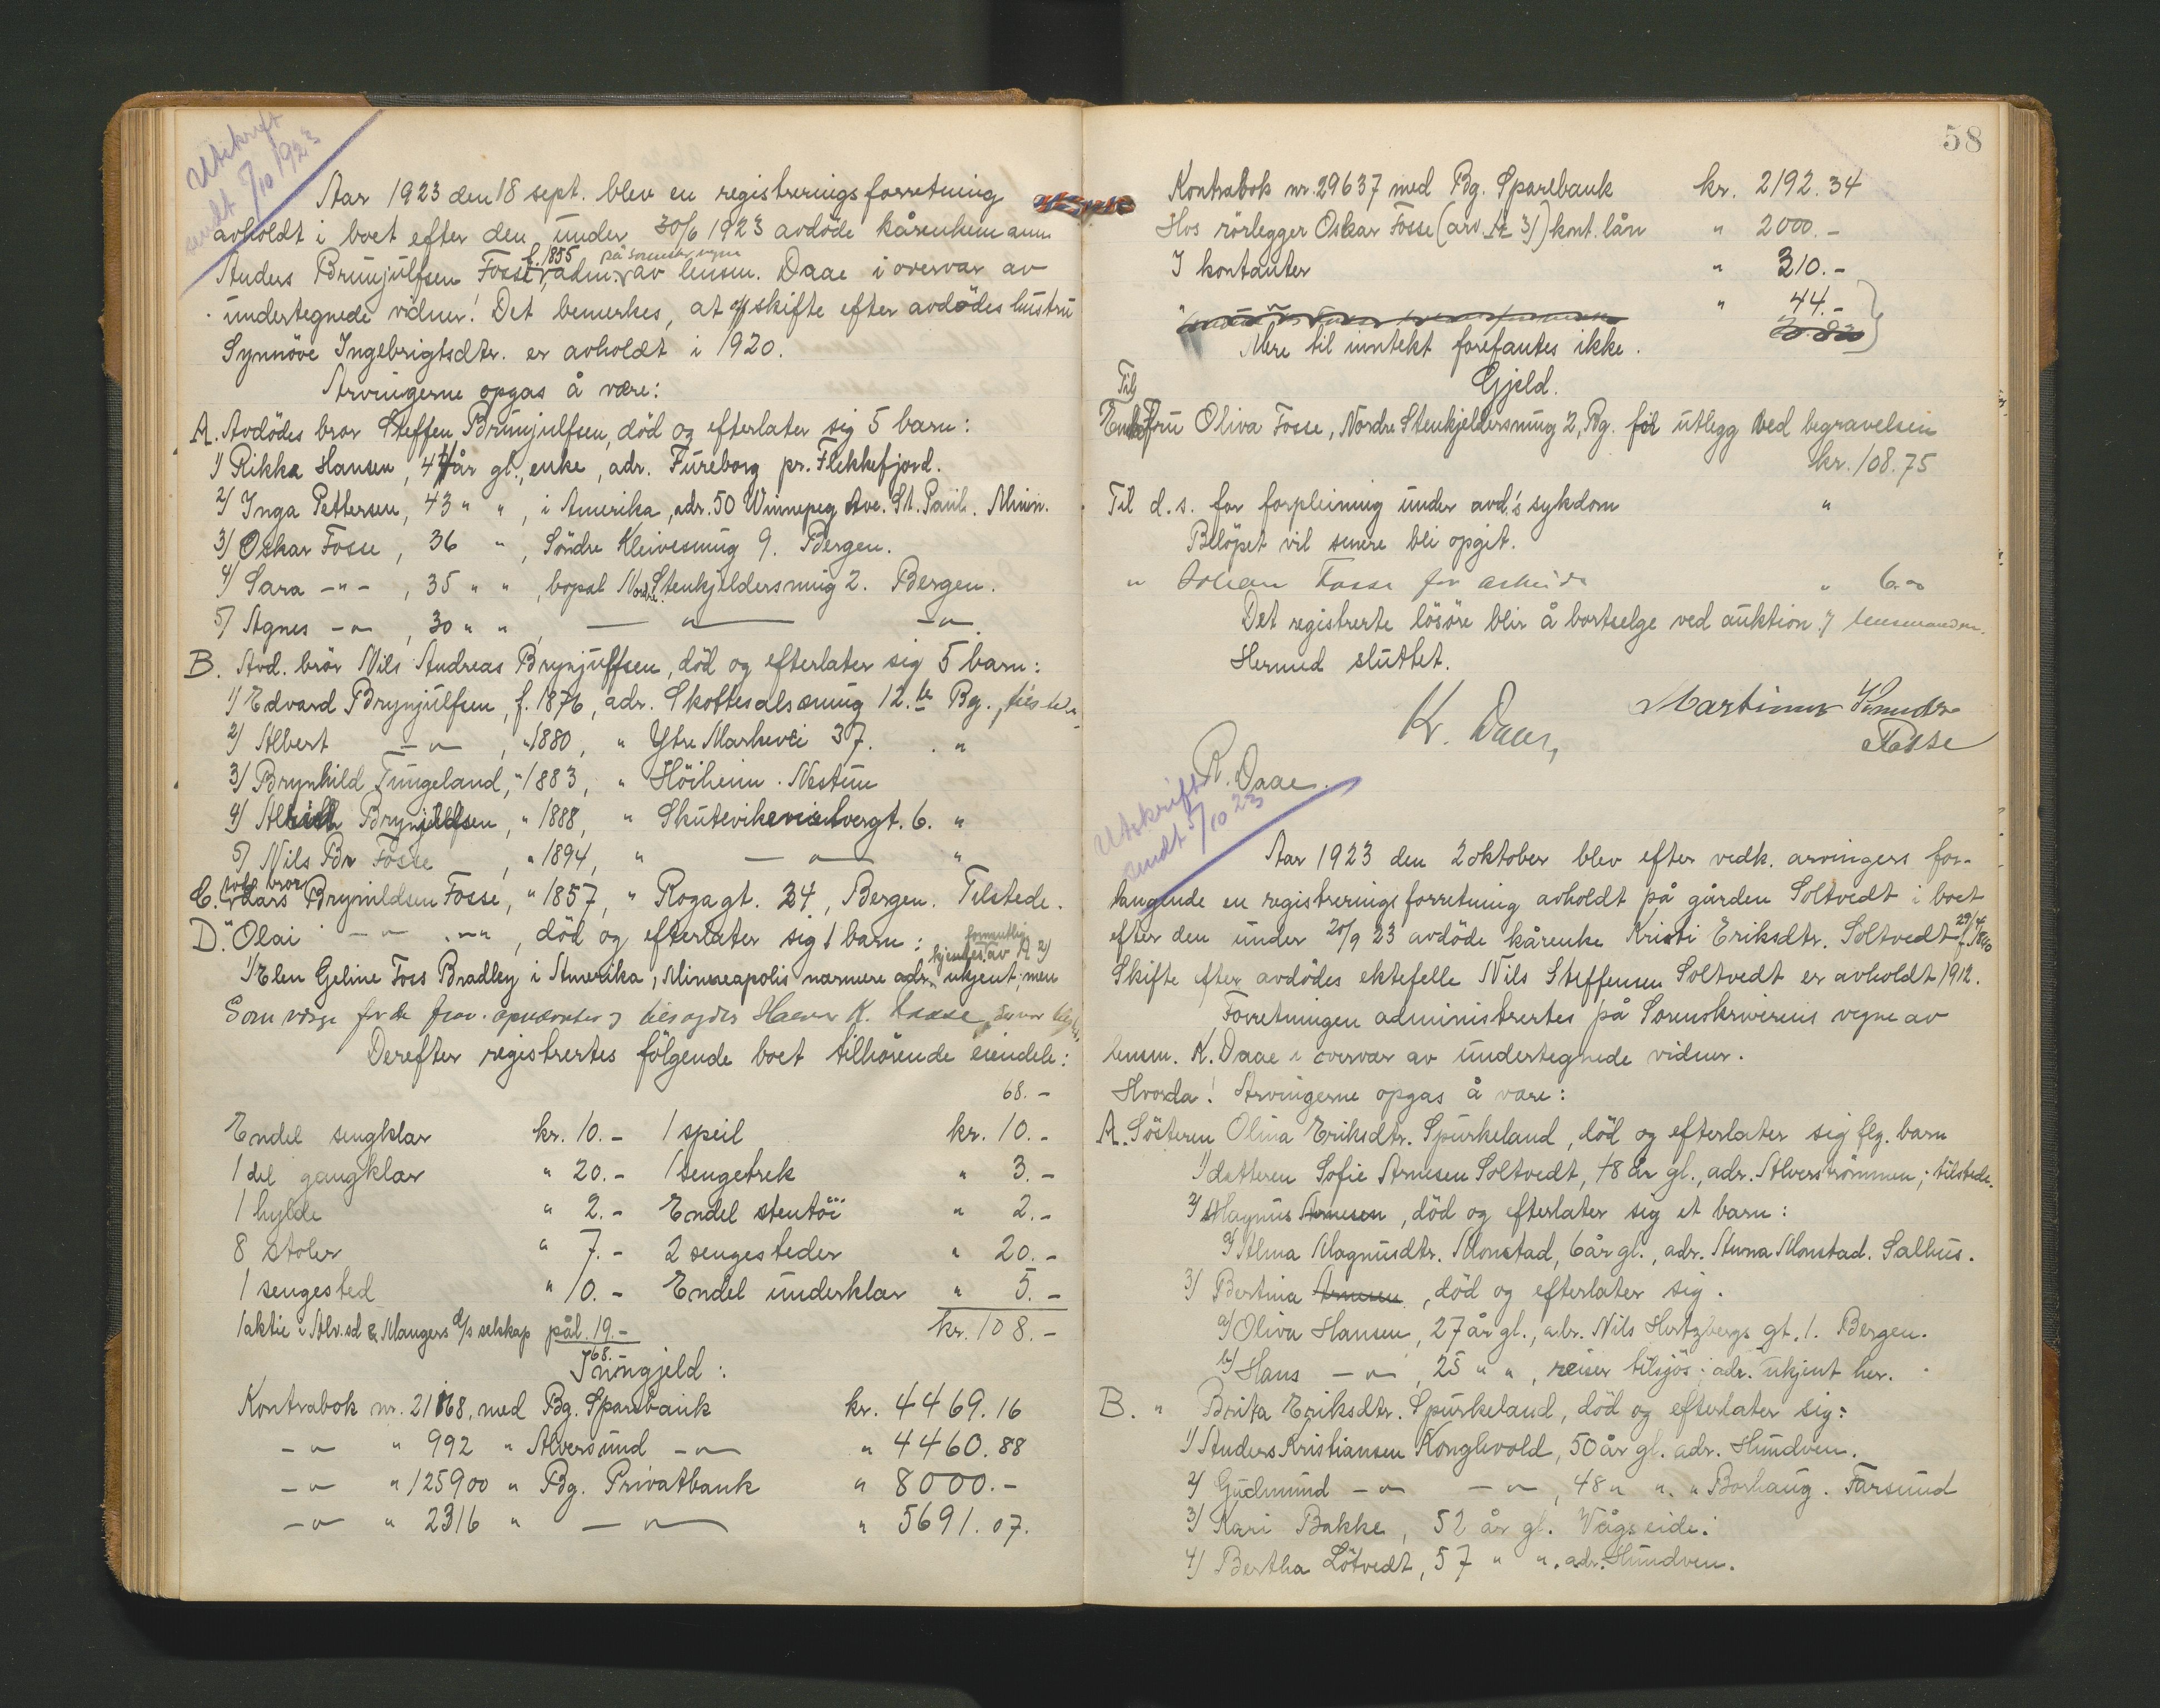 Utskrift
sendt 5/10 1923
Aar 1923 den 18 sept. blev en registreringsforretning
avholdt i boet efter den under 30/6 1923 avdöde kårenkemann
f. 1855 på sorenskr. vegne
Anders Brunjulfsen Fosse, adm. av lensm. Daae i overvær av
undertegnede vidner! Det bemerkes, at skifte efter avdödes hustru
Synnöve Ingebrigtsdtr. er avholdt i 1920.
Arvingerne opgas å være:
A. Avdödes bror Steffen Brunjulfsen, död og efterlater sig 5 barn:
1) Rikka Hansen, 47 år gl., enke, adr. Fureborg pr. Flekkefjord.
2) Inga Pettersen, 43 " " , i Amerika, adr. 50 Winnepeg Ave. St. Paul. Minn.
3) Oskar Fosse, 36 " , Söndre Kleivesmug 9. Bergen.
4) Sara -"- , 35 " " , bopæl Nordre Stenkjeldersmug 2. Bergen.
5) Agnes -"- , 30 " " , -"- -"-
B. Avd. bror Nils Andreas Brynjulfsen, död og efterlater sig 5 barn:
1) Edvard Brynjulfsen, f. 1876, adr. Skottesalsmug 12. Bg.,
2) Albert -"- , " 1880, " Ytre Markevei 37. "
3) Brynhild Tungeland, " 1883, " Höiheim. Nestun
4) Brynjulfsen, " 1888, " Skutevikeveiselvergt. 6. "
5) Nils Br Fosse , " 1894, " -"- "
C. avd. bror Lars Brynildsen Fosse, " 1857, " Rogagt. 34, Bergen. Tilstede.
D. " Olai -"- -"- , död og efterlater sig 1 barn:
formentlig
kjendes av A 2)
1) Elen Geline Foss Bradley i Amerika, Minneapolis nærmere adr. ukjent, men
Som verge for de frav.
Derefter registrertes fölgende boet tilhörende eiendele:
68.-
Endel sengklær kr. 10.- 1 speil kr. 10.-
1 del gangklær " 20.- 1 sengetrek " 3.-
1 hylde " 2.- Endel stentöi " 2.-
8 stoler " 7.- 2 sengesteder " 20.-
1 sengested " 10.- Endel underklær " 5.-
1 aktie i Alv.sd & Mangers d/s selskap pål. 19.- kr. 108.-
68.
Inngjeld:
Kontrabok nr. 21168, med Bg. Sparebank kr. 4469.16
-"- " 992 " Alversund -"- " 4460.88
-"- " 125900 " Bg. Privatbank " 8000.-
-"- " 2316 " -"- " 5691.07.
58
Kontrabok nr. 29637 med Bg. Sparebank kr. 2192.34
Hos rörlegger Oskar Fosse (arv. A 3)) kont. lån " 2000.-
I kontanter " 310.-
" " 44.-
Mere til inntekt forefantes ikke.
Gjeld.
Til
Fru Oliva Fosse, Nordre Stenkjeldersmug 2, Bg. for utlegg ved begravelsen
kr. 108.75
Til d.s. for forpleining under avd.'s sykdom "
Belöpet vil senere bli opgit.
" Johan Fosse for arbeide " 6.00
Det registrerte lösöre blir å bortselge ved auktion v/ lensmanden.
Hermed sluttet.
K. Daae, Martinus Knudsen Fosse
R. Daae.
Utskrift
sendt 5/10 23
Aar 1923 den 2 oktober blev efter vedk. arvingers for-
langende en registreringsforretning avholdt på gården Soltvedt i boet
efter den under 20/9 23 avdöde kårenke Kristi Eriksdtr. Soltvedt f. 29/4 1840
Skifte efter avdödes ektefelle Nils Steffensen Soltvedt er avholdt 1912.
Forretningen administrertes på Sorenskriverens vegne av
lensm. K. Daae i overvær av undertegnede vidner.
Hvorda! Arvingerne opgas å være:
A. Sösteren Olina Eriksdtr. Spurkeland, död og efterlater sig flg. barn
1) datteren Sofie Arnesen Soltvedt, 48 år gl., adr. Alverströmmen; tilstede.
2) Magnus Arnesen, död og efterlater sig et barn:
a) Alma Magnusdtr. Monstad, 6 år gl., adr. Anna Monstad. Salhus.
3) Bertina Arnesen, död og efterlater sig.
a) Oliva Hansen, 27 år gl., adr. Nils Hertzbergs gt. 1. Bergen.
b) Hans -"- , 25 " " , reiser tilsjös; adr. ukjent her.
B. " Brita Eriksdtr. Spurkeland, död og efterlater sig:
1) Anders Kristiansen Konglevold, 50 år gl. adr. Hundven.
2) Gudmund -"- -"- , 48 " " . " Borhaug. Farsund
3) Kari Bakke, 52 år gl. Vågseide.
4) Bertha Lötvedt, 57 " " . adr. Hundven.